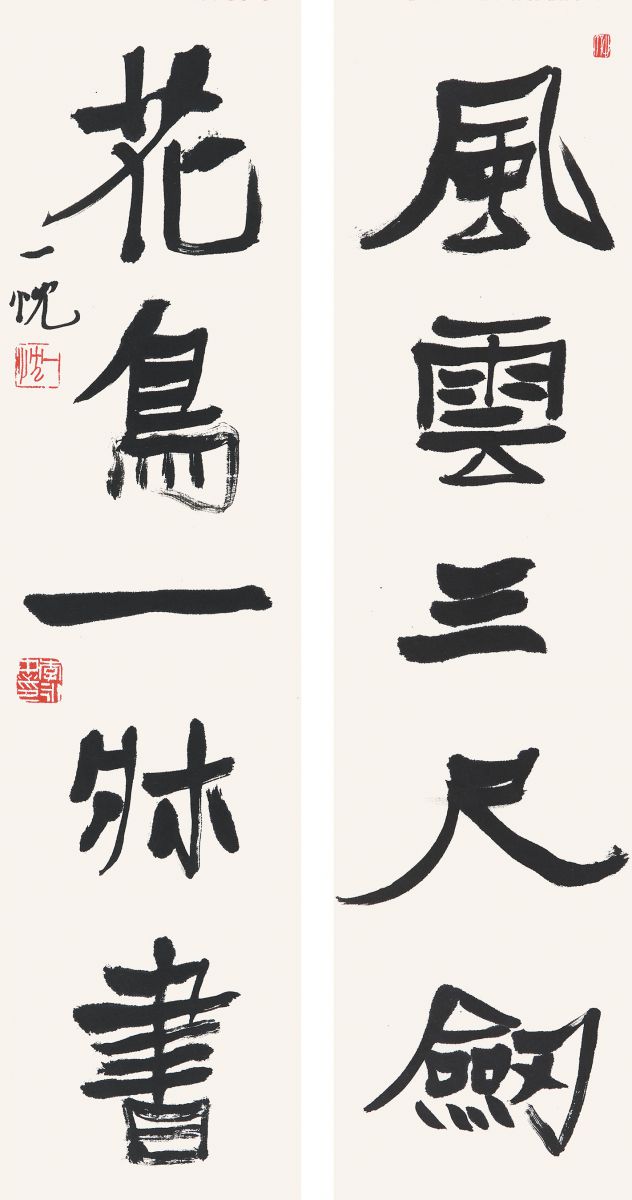 風雲三尺劒
花鳥一牀書
一忱